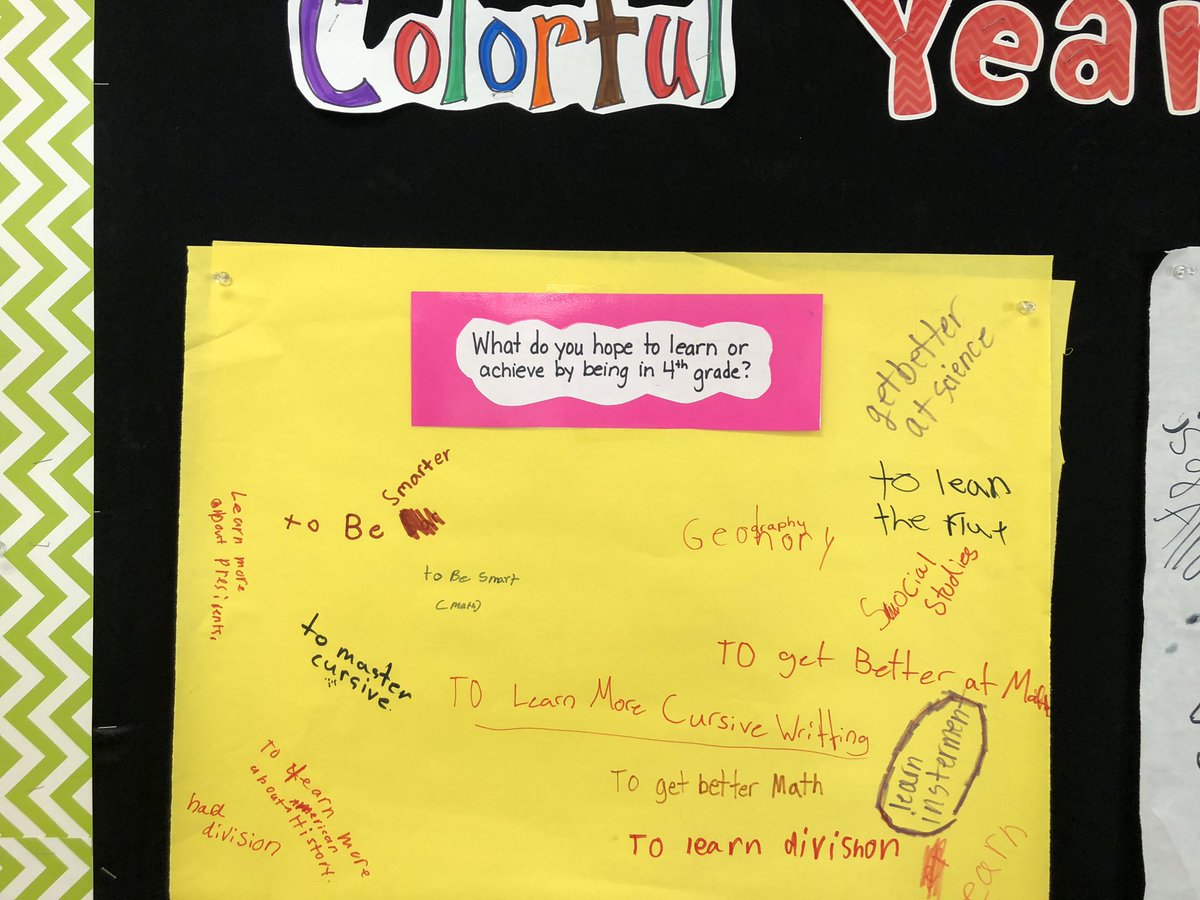 Colorful Year
What do you hope to learn or
achieve by being in 4th grade?
get better
at science
to lean
the flut
Smarter
to Be
Learn more
about presidents,
Geography
to Be Smart
(Math)
Social
Studies
to master
cursive.
TO get Better at Math
TO Learn More Cursive Writting
learn
insterment
To get better Math
To learn more
about American
History.
had
division
TO learn divishon
earn